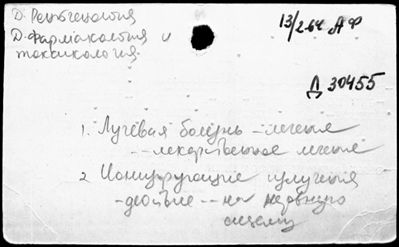 Д. Рентгенология
Д. Фармакология и
токсикология
13/2 64 АФ
Д 30455
1. Лучевая болезнь – лечение
-- лекарственное лечение
2 Ионизирующие излучения
- действие -- на нервную
систему